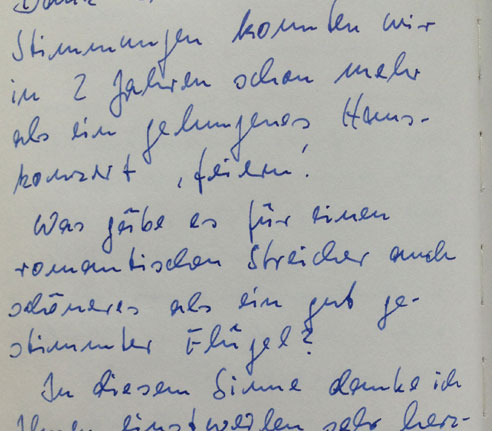 Stimmungen konnten wir
in 2 Jahren schon mehr
als ein gelungenes Haus-
konzert ‚feiern'.
Was gäbe es für einen
romantischen Streicher auch
schöneres als ein gut ge-
stimmter Flügel?
In diesem Sinne danke ich
Ihnen einstweilen sehr herz-